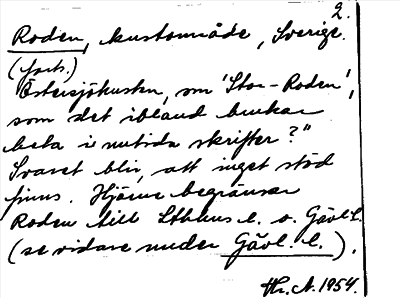 2.
Roden, kustområde, Sverige.
(forts.)
Östersjökusten, om 'Stor-Roden',
som det ibland brukar
heta i nutida skrifter?"
Svaret blir, att inget stöd
finns. Hjärne begränsar
Roden till Sthlms l. o. Gävl. l.
(se vidare under Gävl. l.).
Hr. A. 1954.